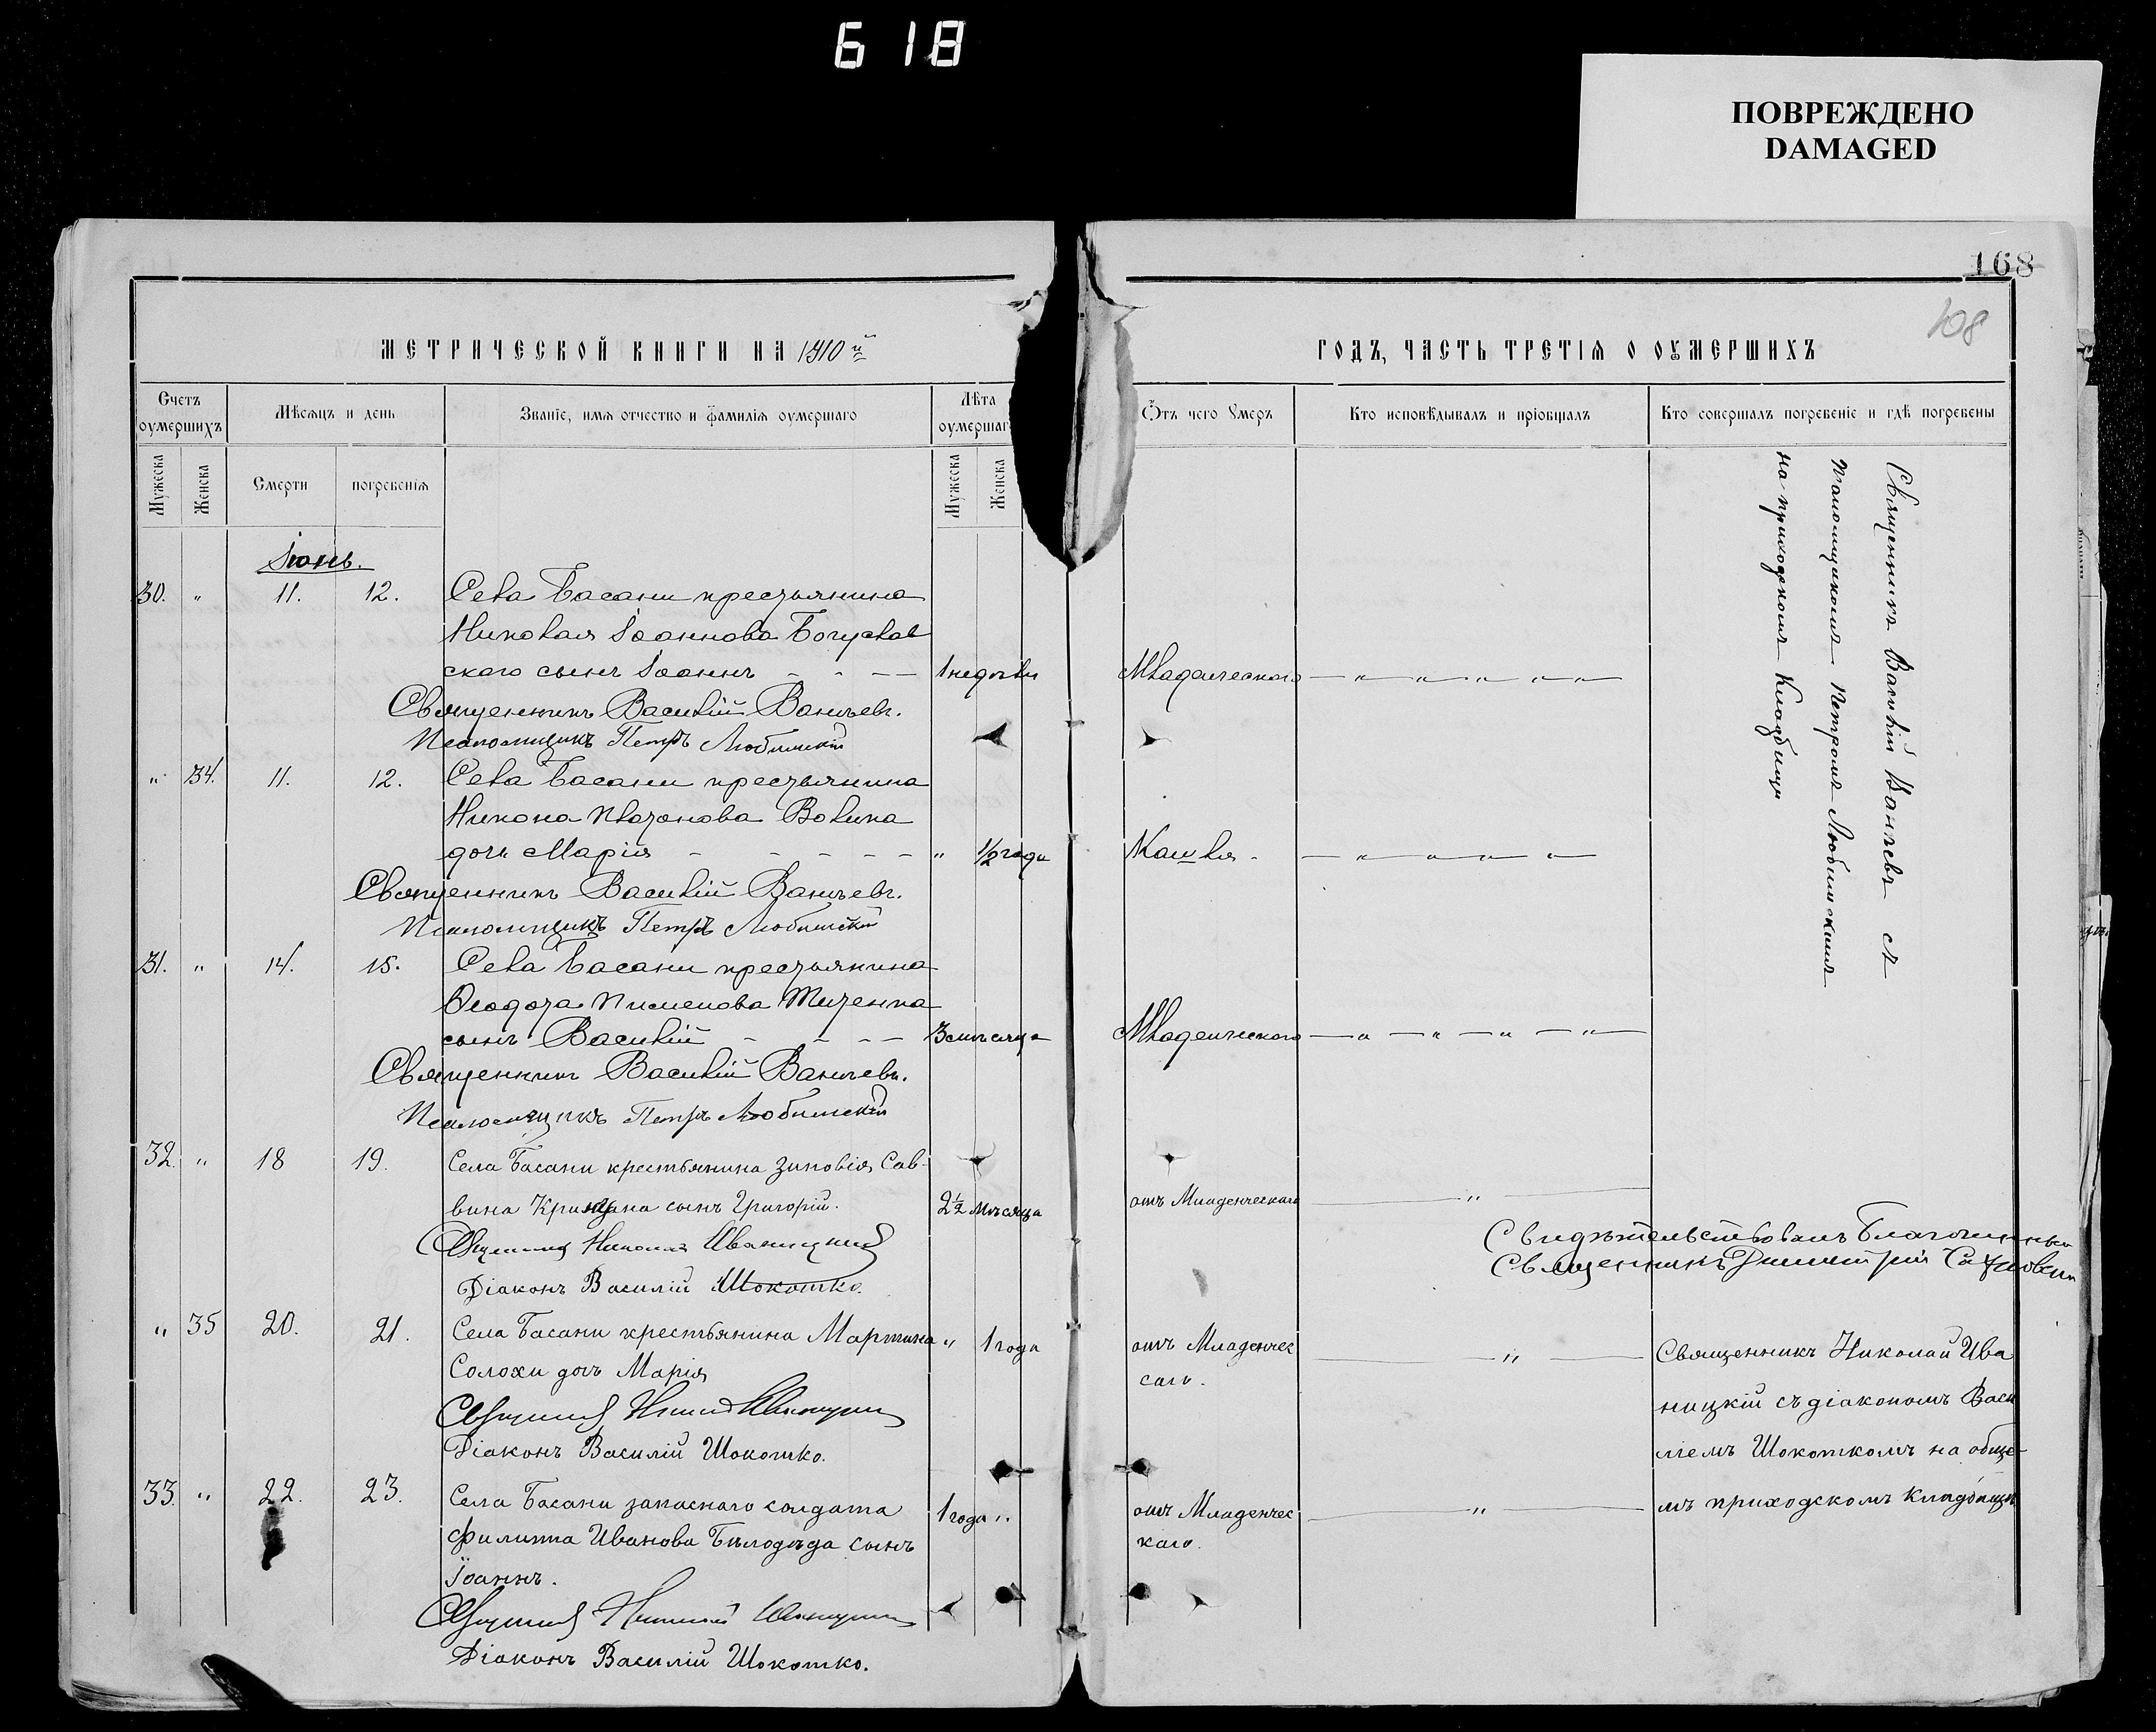 618
ПОВРЕЖДЕНО
DAMAGED
168
108
МЕТРИЧЕСКОЙ КНИГИ НА 1910й
ГОДЪ, ЧАСТЬ ТРЕТІЯ О ОУМЕРШИХЪ
Счетъ оумершихъ
Мѣсяцъ и день
Званіе, имя отчество и фамилія оумершаго
Лѣта оумершаг
Отъ чего Умеръ
Кто исповѣдывалъ и пріобщалъ
Кто совершалъ погребеніе и гдѣ погребены
Мужеска
Женска
Смерти
погребенія
Мужеска
Женска
Іюнь.
30. " 11. 12. Села Басани крестьянина
Николая Іоаннова Богуслав
скаго сынъ Іоаннъ - - - 1 недѣли Младенческаго — " — " — " — " — "
Священникъ Василій Ваньевъ.
Псаломщикъ Петръ Любимскій
" 34. 11. 12. Села Басани крестьянина
Никона Платонова Волика
дочь Марія - - - - - " 1/2 года Кашля - — " — " — " — "
Священникъ Василій Ваньевъ.
Псаломщикъ Петръ Любимскій
31. " 14. 15. Села Басани крестьянина
Ѳеодора Пименова Тищенка
сынъ Василій - - - - 3 мѣсяца Младенческаго — " — " — " — "
Священникъ Василій Ваньевъ.
Псаломщикъ Петръ Любимскій
Священникъ Василій Ваньевъ съ
псаломщикомъ Петромъ Любимскимъ
на приходскомъ Кладбищѣ
32. " 18 19. Села Басани крестьянина Зиновія Сав-
вина сынъ Григорій. 2 1/2 мѣсяца отъ Младенческаго "
Священникъ Николай Иваницкій
Діаконъ Василій Шокотко.
Свидѣтельствовалъ Благочинный
Священникъ Димитрій
" 35 20. 21. Села Басани крестьянина Мартина " 1 года отъ Младенчес "
Солохи дочъ Марія
саго.
Священникъ Николай Иваницкій
Діаконъ Василій Шокотко.
Священникъ Николай Ива
ницкій съ діакономъ Васи
ліемъ Шокоткомъ на обще-
мъ приходскомъ кладбищѣ
33. " 22. 23. Села Басани запаснаго солдата 1 года " отъ Младенчес "
Филиппа Иванова Бѣлодѣда сынъ
каго.
Іоаннъ.
Священникъ Николай Иваницкій
Діаконъ Василій Шокотко.